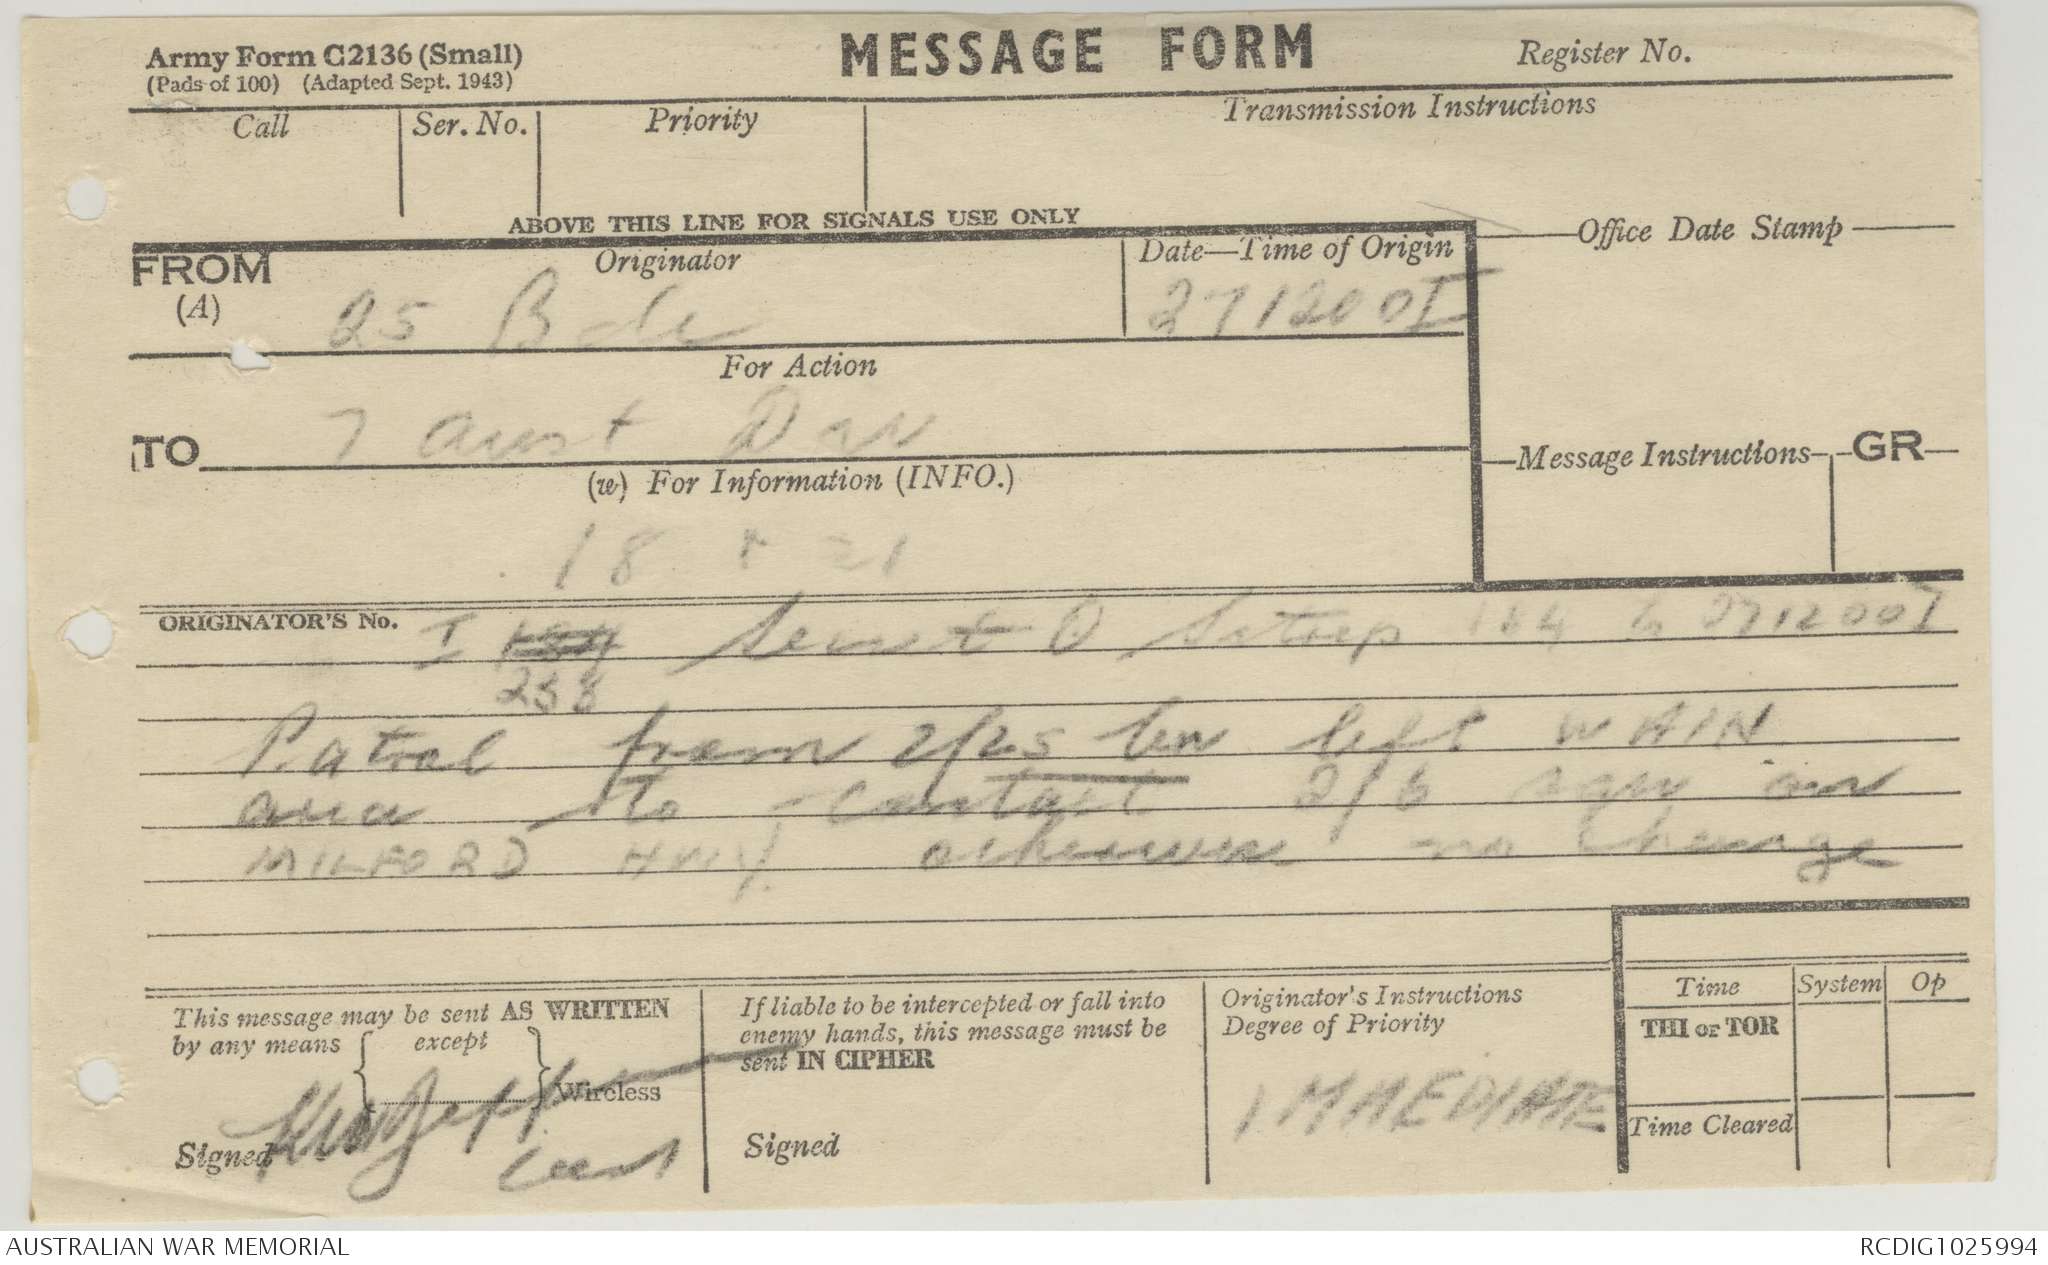 Army Form C2136 (Small)
(Pads of 100) (Adapted Sept. 1943)
MESSAGE FORM
Register No.
Call
Ser. No.
Priority
Transmission Instructions
ABOVE THIS LINE FOR SIGNALS USE ONLY
FROM
(A)
Originator
25 Bde
Date—Time of Origin
271200I
Office Date Stamp
For Action
TO
7 Aust Div
(w) For Information (INFO.)
18 + 21
Message Instructions
GR
ORIGINATOR'S No.
I 184 Secret O Sitrep 184 to 271200I
258
Patrol from 2/25 bn left WAIN
area to contact 2/6 sqn on
MILFORD HWY. otherwise no change
This message may be sent AS WRITTEN
by any means
except
Wireless
Signed
Lieut
If liable to be intercepted or fall into
enemy hands, this message must be
sent IN CIPHER
Signed
Originator's Instructions
Degree of Priority
IMMEDIATE
Time
System
Op
THI OF TOR
Time Cleared
AUSTRALIAN WAR MEMORIAL
RCDIG1025994